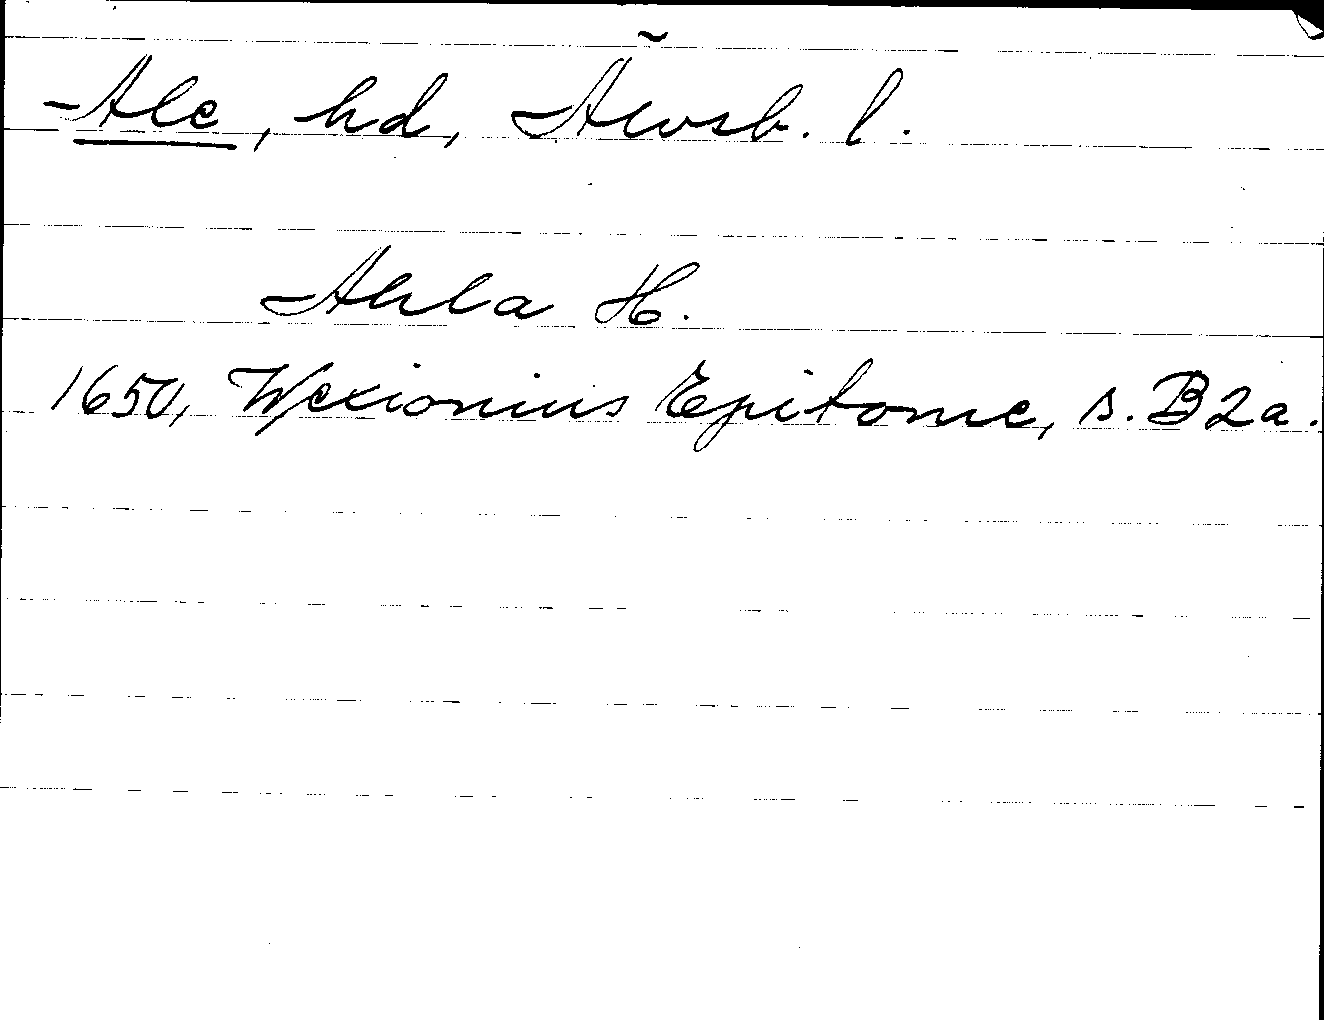 Ale, hd, Älvsb. l.
Ahla H.
1650, Wexionius Epitome, s. B2a.